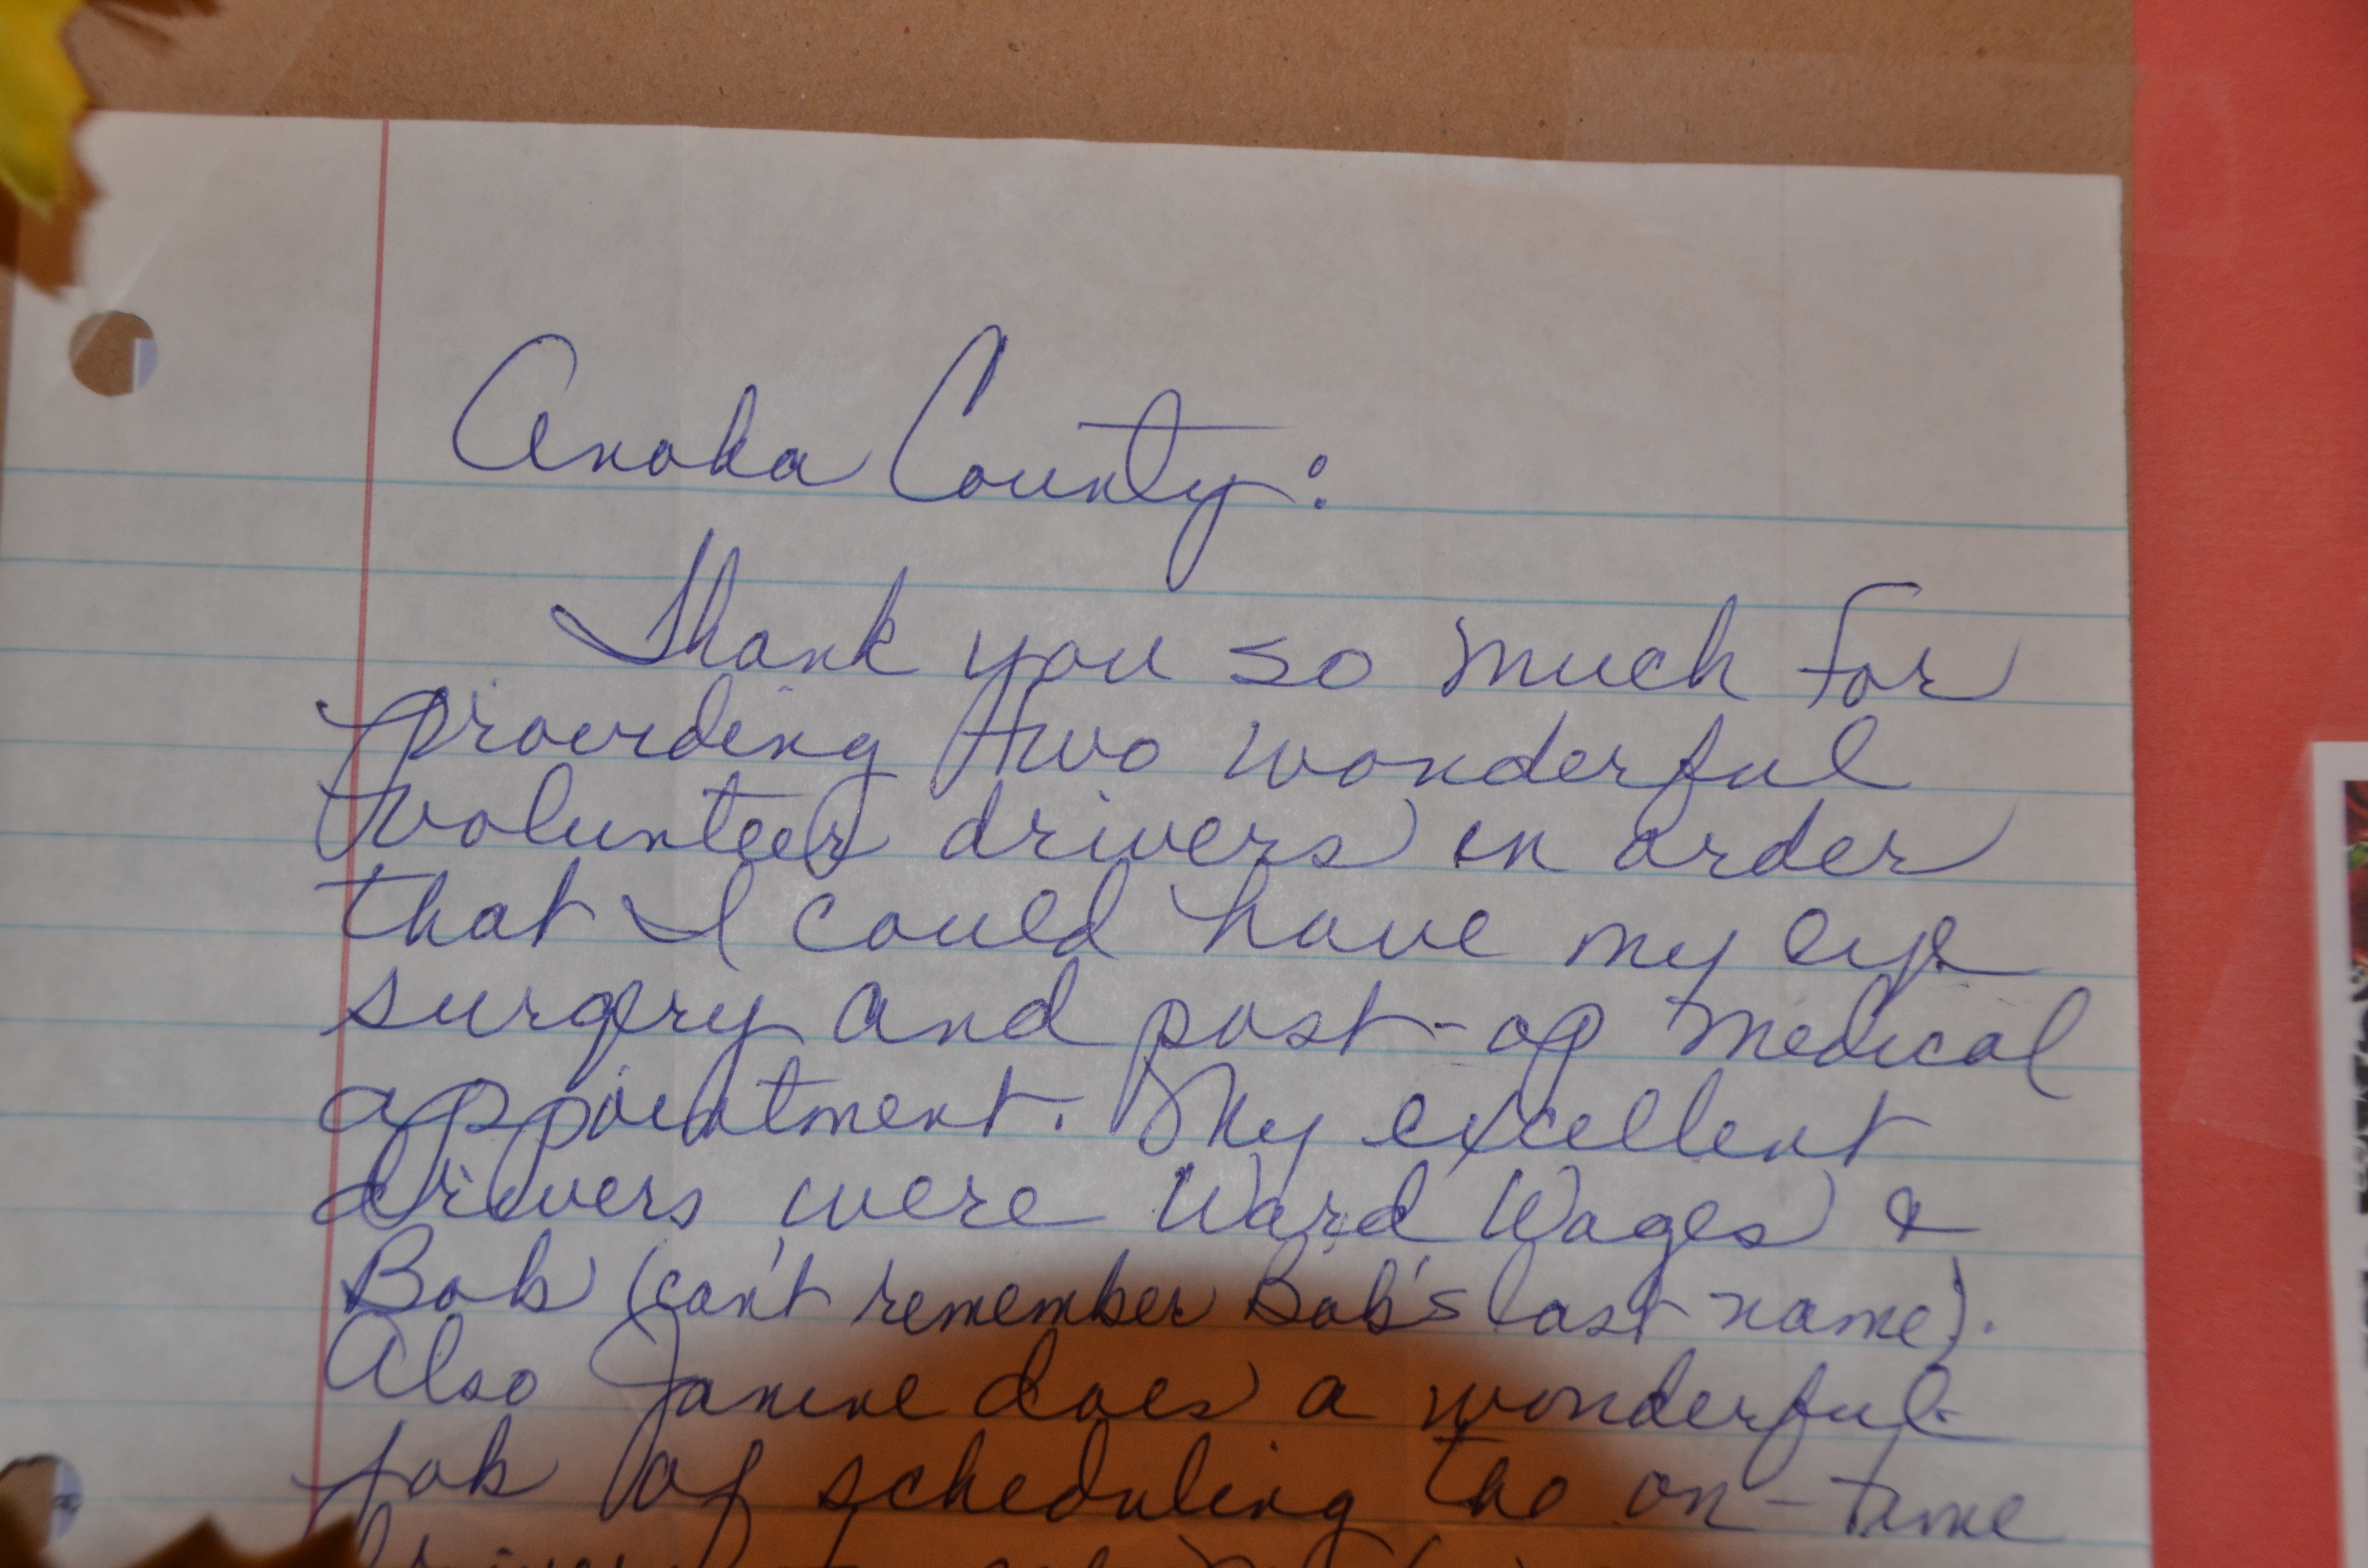 Anoka County:
Thank you so much for
providing two wonderful
volunteer drivers in order
that I could have my eye
surgery and post-op medical
appointment. My excellent
drivers were Ward Wages &
Bob (can't remember Bob's last name).
Also Janine does a wonderful
job of scheduling the on-time